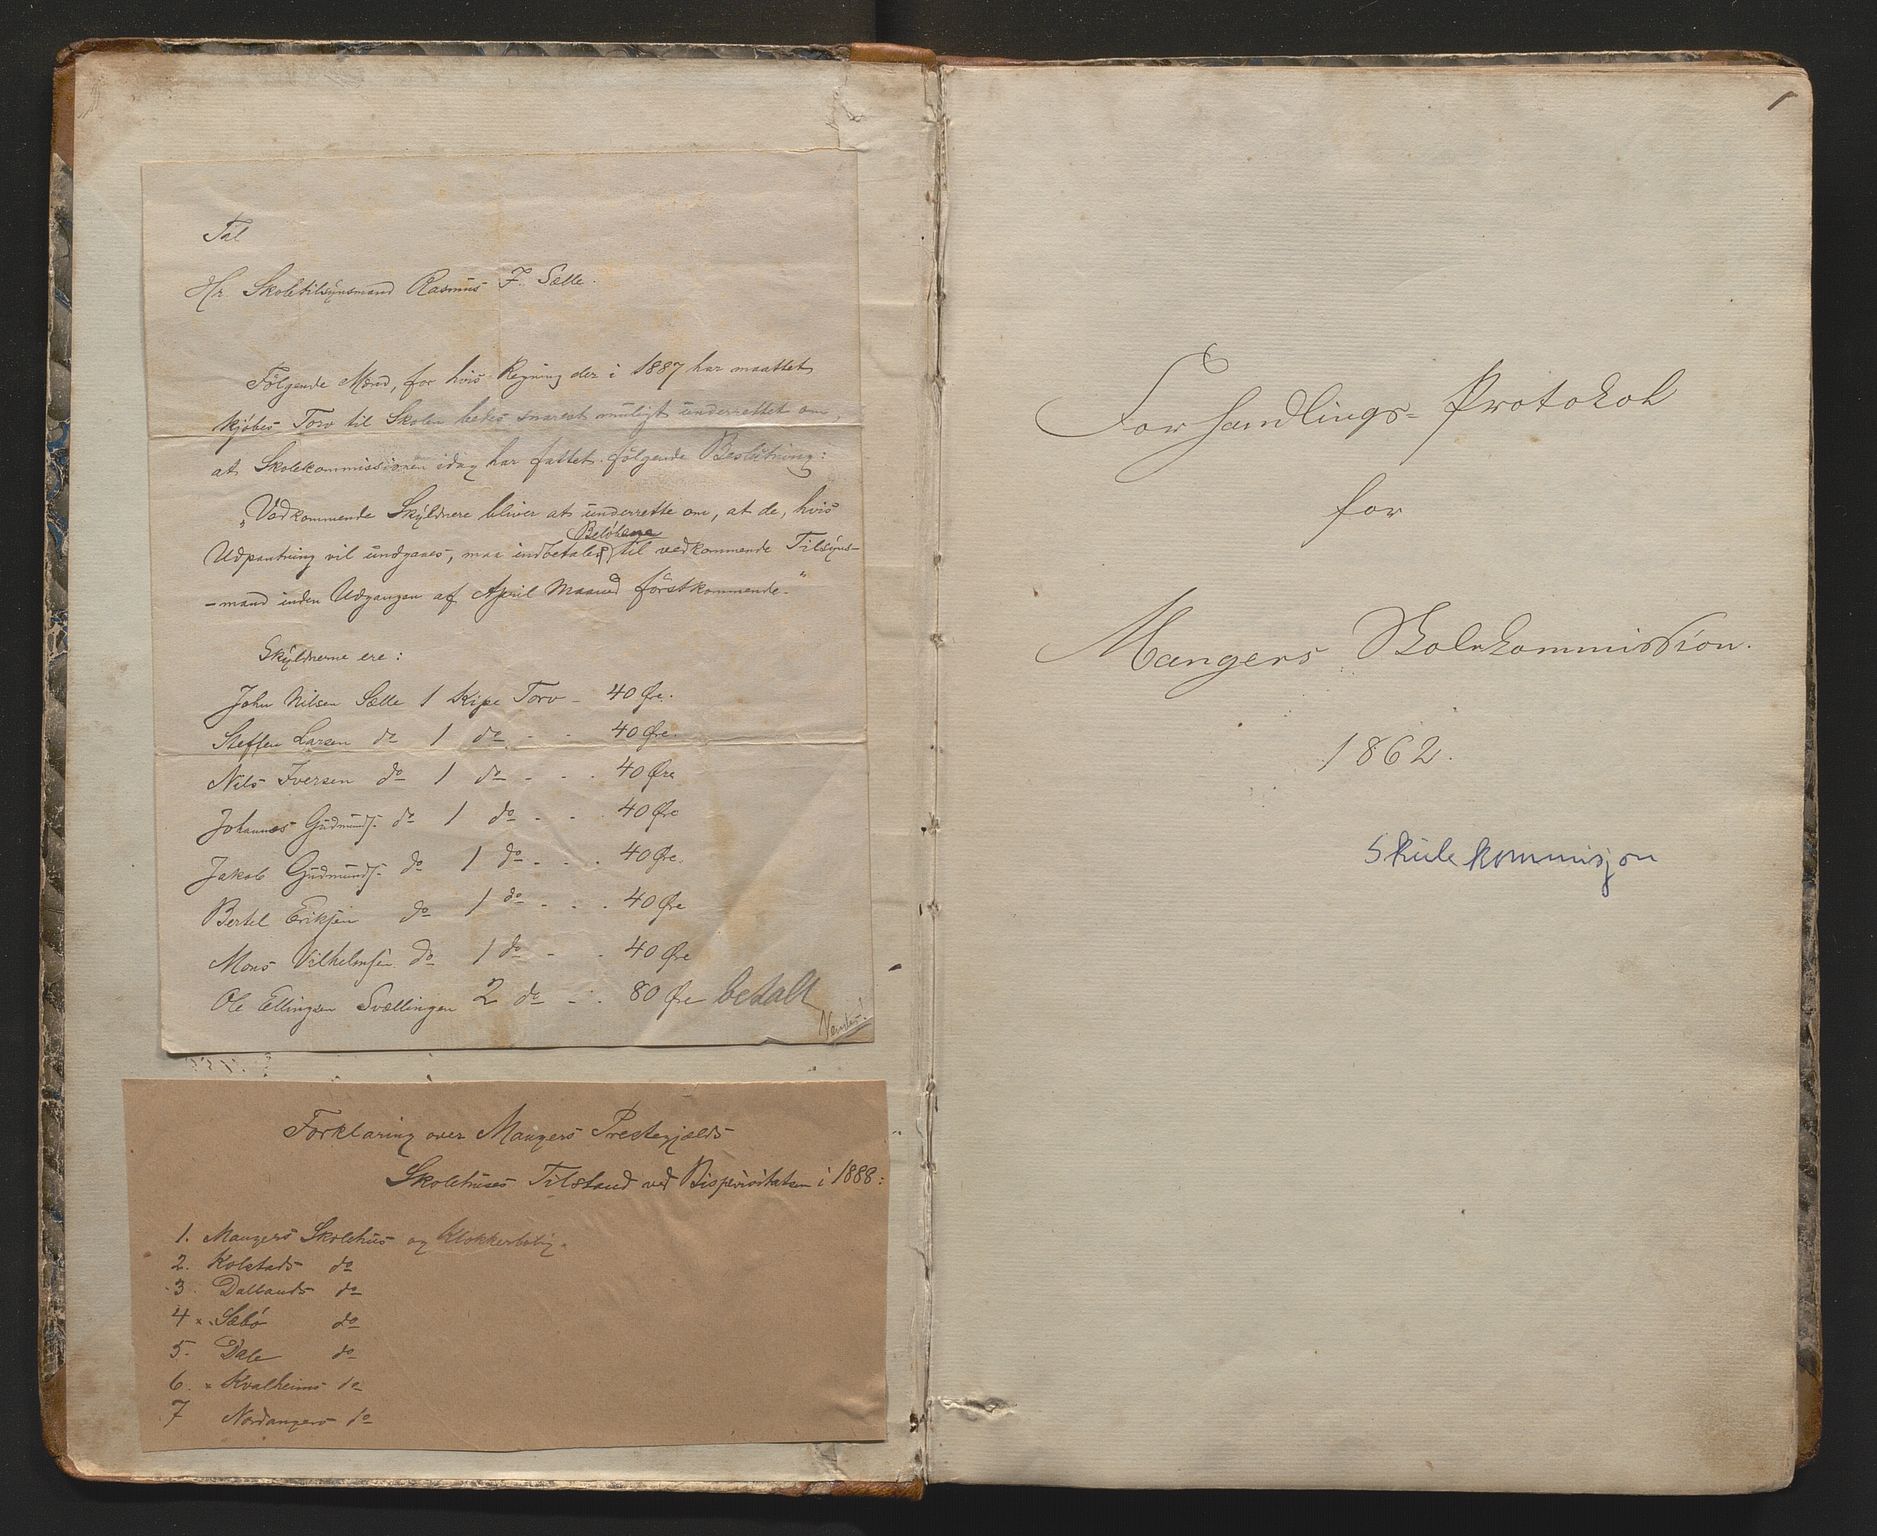 Til
Hr. Skoletilsynsmand Rasmus F. Sælle.
Følgende Mænd, for hvis Regning der i 1887 har maattet
kjøbes Torv til Skolen bedes snarest muligt underrettet om,
at Skolekommissionen idag har fattet følgende Beslutning:
"Vedkommende Skyldnere bliver at underrette om, at de, hvis
Beløbene
Udpantning vil undgaaes, maa indbetales til vedkommende Tilsyns-
-mand inden Udgangen af April Maaned førstkommende."
Skyldnerne ere:
John Nilsen Sælle 1 Kipe Torv - 40 Øre.
Steffen Larsen do 1 do - - 40 Øre.
Nils Iversen do 1 do - - - 40 Øre
Johannes Gudmunds. do 1 do - - - 40 Øre
Jakob Gudmunds. do 1 do - - - 40 Øre.
Bertel Eriksen do 1 do - - - 40 Øre
Mons Vilhelmsen do 1 do - - 40 Øre
Ole Ellingsen Svællingen 2 do - - 80 Øre betalt
Forklaring over Mangers Prestegjælds
Skolehuses Tilstand ved Bispevisitatsen i 1888:
1. Mangers Skolehus og Klokkerbolig.
2. Kolstads do
3. Dallands do
4 x Sæbø do
5. Dale do
6. x Kvalheims do
7 Nordangers do
1
Forhandlings-Protokol
for
Mangers Skolekommission.
1862.
Skulekommisjon